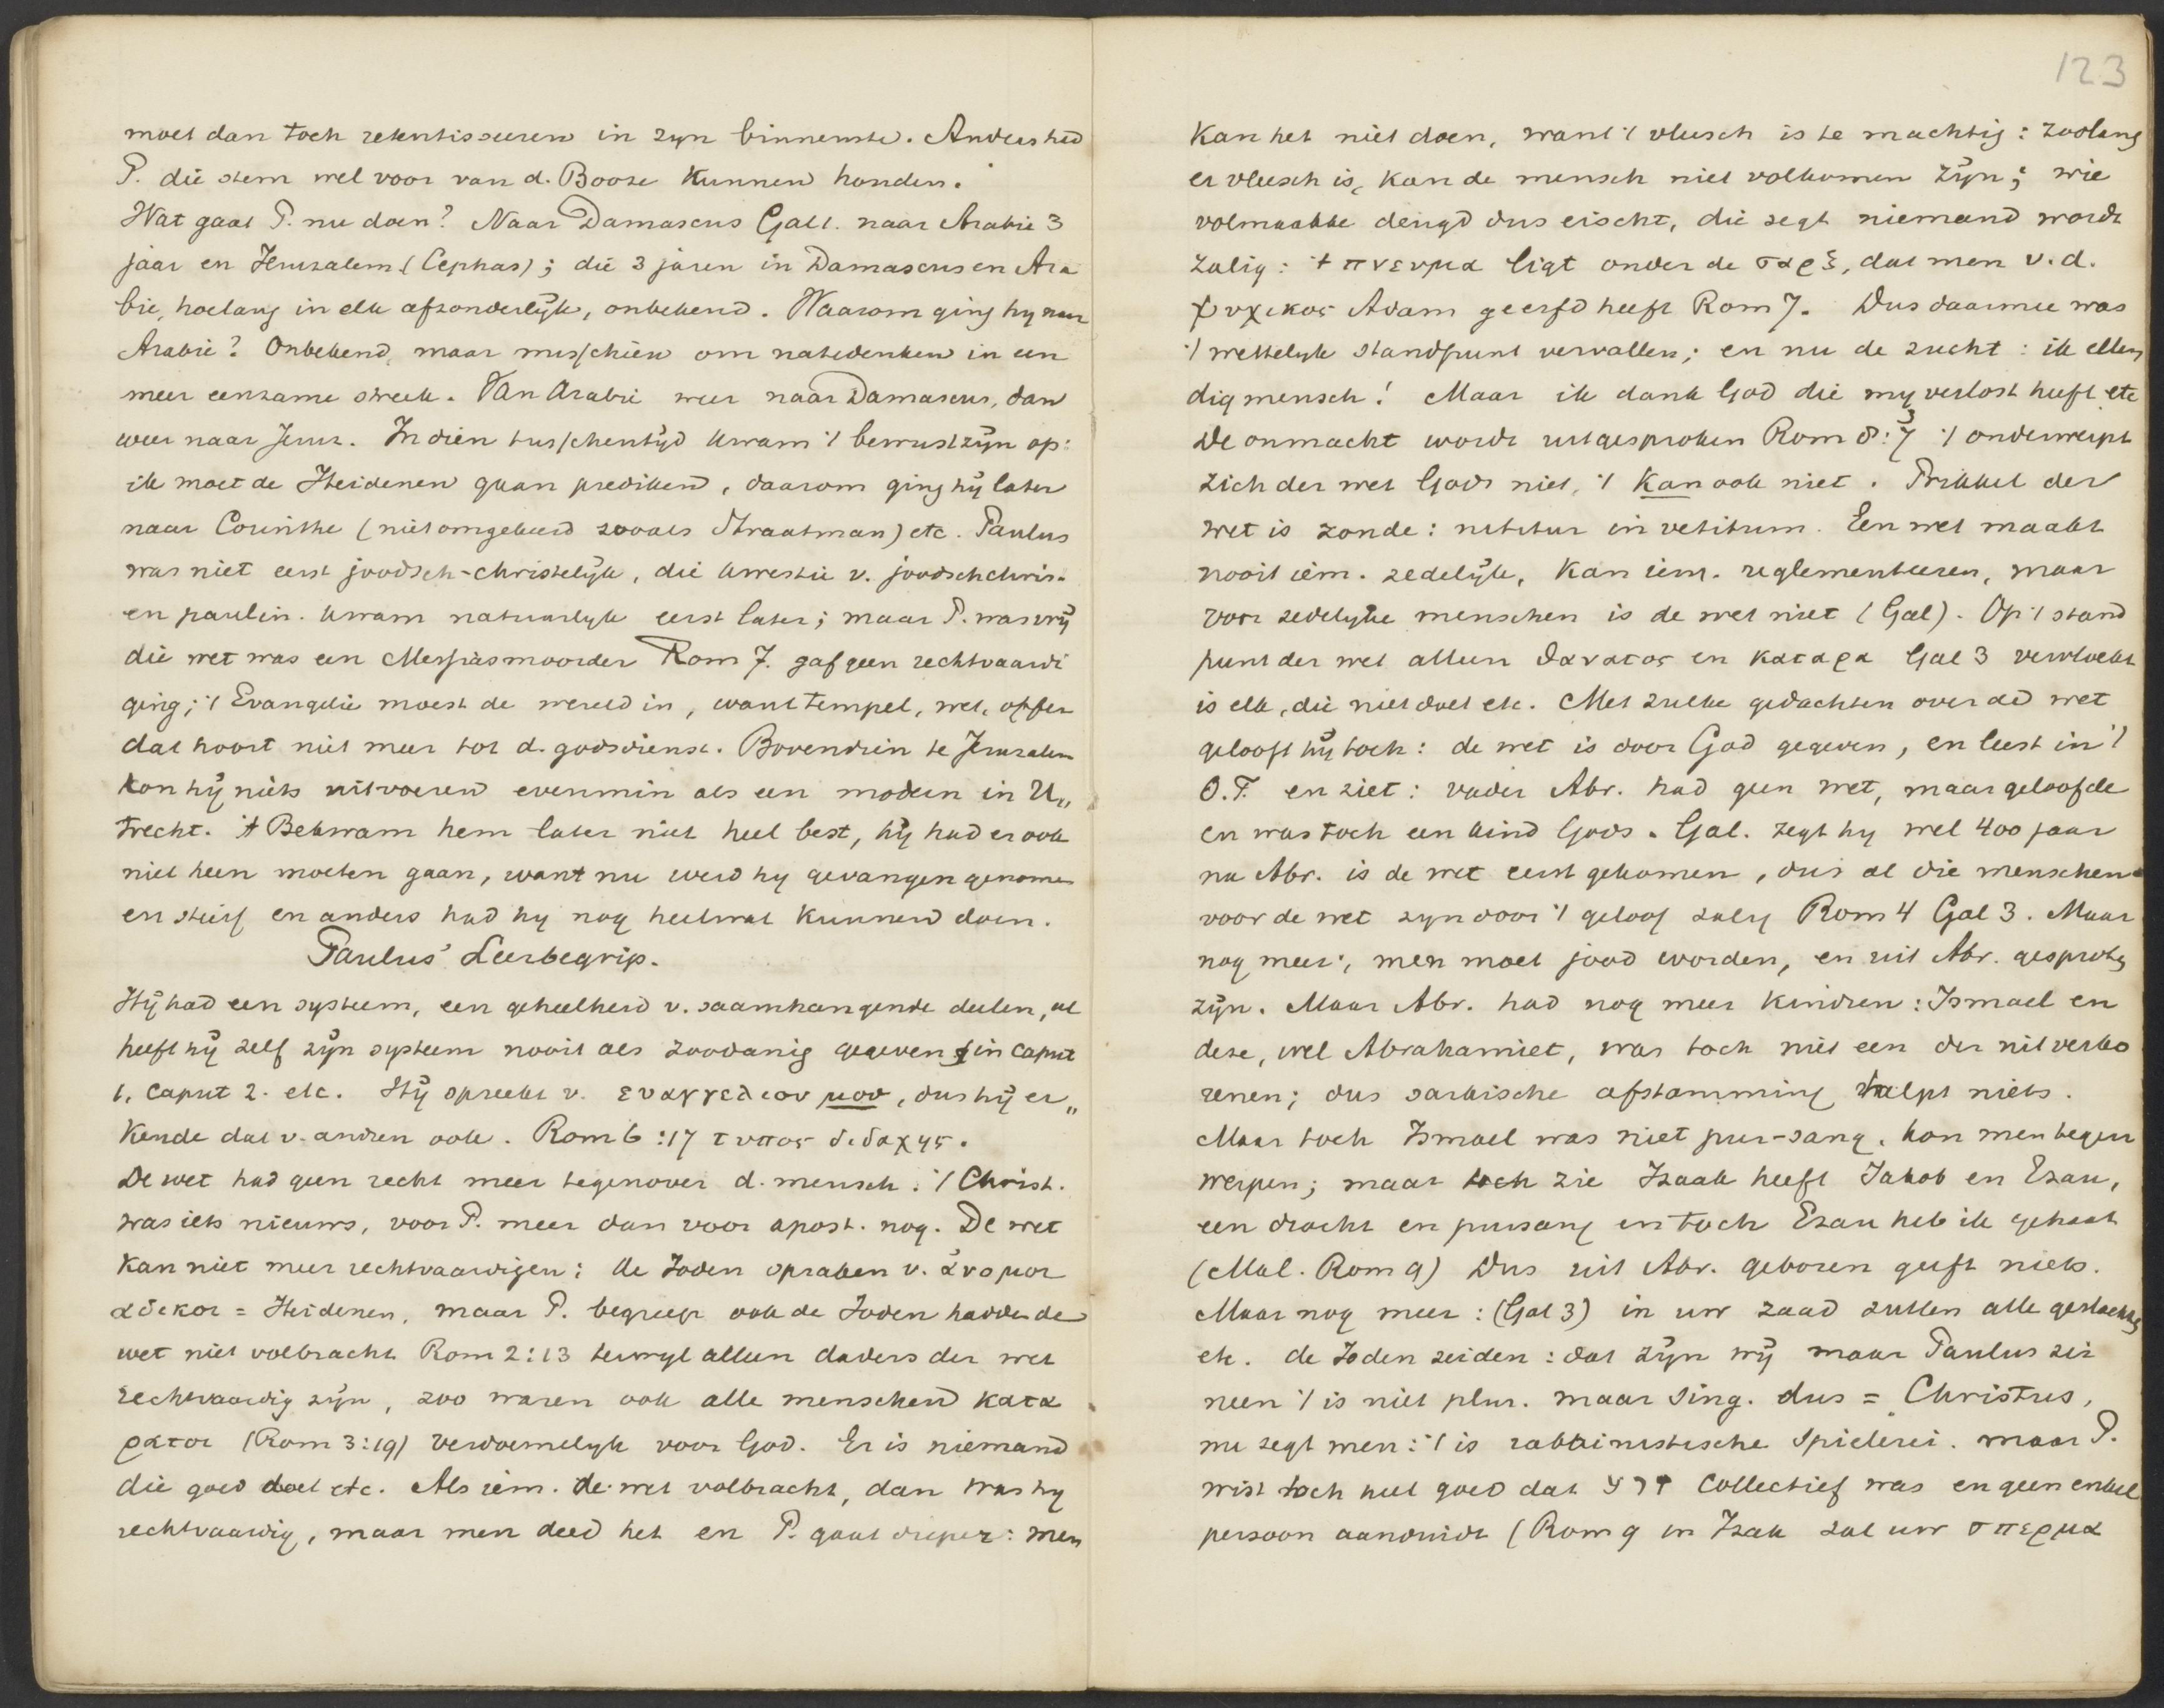 moet dan toch retentisseeren in zyn binnenste. Anders had
P. die stem wel voor van d. Booze kunnen houden.
Wat gaat P. nu doen? Naar Damascus Gal1. naar Arabie 3
jaar en Jeruzalem (Cephas); die 3 jaren in Damascus en Ara
bie, hoelang in elk afzonderlijk, onbekend. Waarom ging hy naar
Arabie? Onbekend, maar misschien om natedenken in een
meer eenzame streek. Van Arabie weer naar Damascus, dan
weer naar Jeruz. In dien tusschentijd kwam 't bewustzijn op:
ik moet de Heidenen gaan prediken, daarom ging hij later
naar Corinthe (niet omgekeerd zooals Straatman) etc. Paulus
was niet eerst joodsch-christelijk, die kwestie v. joodschchris.
en paulin. kwam natuurlyk eerst later; maar P. was vrij
die wet was een Messiasmoorder Rom 7. gaf geen rechtvaardi
ging; 't Evangelie moest de wereld in, want tempel, wet, offer
dat hoort niet meer tot d. godsdienst. Bovendien te Jeruzalem
kon hij niets uitvoeren evenmin als een modern in U„
trecht. 't Bekwam hem later niet heel best, hij had er ook
niet heen moeten gaan, want nu werd hy gevangen genomen
en stierf en anders had hy nog heelwat kunnen doen.
Paulus' Leerbegrip.
Hij had een systeem, een geheelheid v. saamhangende deelen, al
heeft hij zelf zijn systeem nooit als zoodanig gegeven in caput
1, caput 2. etc. Hij spreekt v. ευαγγελιον μου, dus hij er„
kende dat v. andren ook. Rom 6:17 τυπος διδαχης.
De wet had geen recht meer tegenover d. mensch. 't Christ.
was iets nieuws, voor P. meer dan voor apost. nog. De wet
kan niet meer rechtvaardigen: de Joden spraken v. ἀνομοι
αδικοι = Heidenen, maar P. begreep ook de Joden hadden de
wet niet volbracht Rom 2:13 terwyl alleen daders der wet
rechtvaardig zijn, zoo waren ook alle menschen κατα
ρατοι (Rom 3:19) verdoemelyk voor God. Er is niemand
die goed doet etc. Als iem. de wet volbracht, dan was hy
rechtvaardig, maar men deed het en P. gaat dieper: men
123
kan het niet doen, want 't vleesch is te machtig: zoolang
er vleesch is, kan de mensch niet volkomen zijn; wie
volmaakte deugd dus eischt, die zegt niemand wordt
zalig: 't πνευμα ligt onder de σαρξ, dat men v.d.
ψυχικος Adam geerfd heeft Rom 7. Dus daarmee was
't wettelyk standpunt vervallen; en nu de zucht: ik ellen
dig mensch! Maar ik dank God die my verlost heeft etc
De onmacht wordt uitgesproken Rom 8:7 't onderwerpt
zich der wet Gods niet, 't kan ook niet. Prikkel der
wet is zonde: nititur in vetitum. Een wet maakt
nooit iem. zedelijk, kan iem. reglementeeren, maar
voor zedelyke menschen is de wet niet (Gal). Op 't stand
punt der wet alleen θανατος en καταρα Gal 3 vervloekt
is elk, die niet doet etc. Met zulke gedachten over de wet
gelooft hij toch: de wet is door God gegeven, en leest in 't
O.T. en ziet: vader Abr. had geen wet, maar geloofde
en was toch een kind Gods. Gal. zegt hy wel 400 jaar
na Abr. is de wet eerst gekomen, dus al die menschen
voor de wet zyn door 't geloof zalig Rom 4 Gal 3. Maar
nog meer:, men moet jood worden, en uit Abr. gesproten
zijn. Maar Abr. had nog meer kindren: Ismael en
deze, wel Abrahamiet, was toch niet een der uitverko
renen; dus sarkische afstamming helpt niets.
Maar toch Ismael was niet pur-sang, kon men tegen
werpen; maar toch zie Izaak heeft Jakob en Ezau,
een dracht en pursang en toch Ezau heb ik gehaat
(Mal. Rom 9) Dus uit Abr. geboren geeft niets.
Maar nog meer: (Gal 3) in uw zaad zullen alle geslachten
etc. de Joden zeiden: dat zijn wij maar Paulus zei
neen 't is niet plur. maar sing. dus = Christus,
nu zegt men: 't is rabbinistische spielerei. maar P.
wist toch heel goed dat זרע collectief was en geen enkel
persoon aanduidt (Rom 9 in Izak zal uw σπερμα